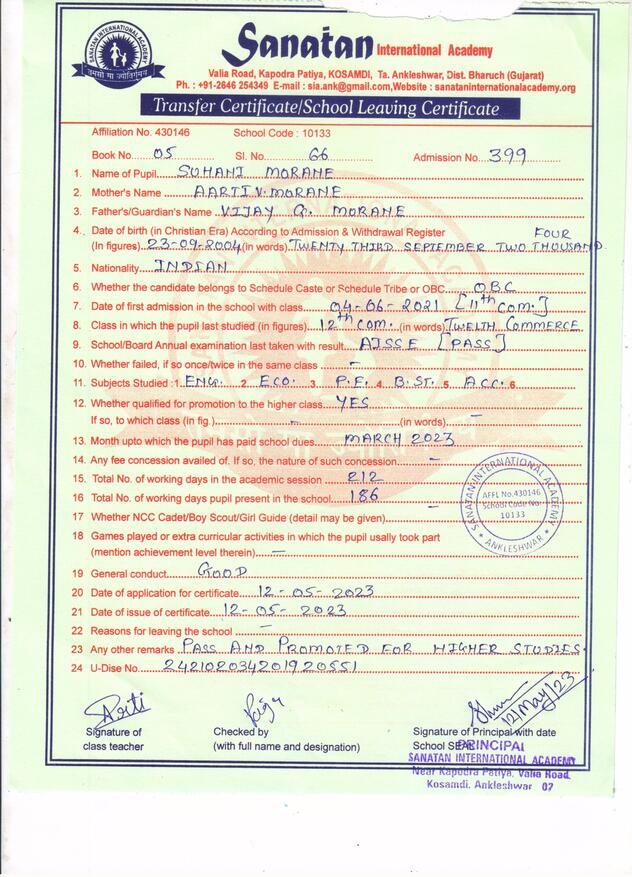 SANATAN INTERNATIONAL ACADEMY
तमसो मा ज्योतिर्गमय
Sanatan International Academy
Valia Road, Kapodra Patiya, KOSAMDI, Ta. Ankleshwar, Dist. Bharuch (Gujarat)
Ph. : +91-2646 254349 E-mail : sia.ank@gmail.com,Website : sanataninternationalacademy.org
Transfer Certificate/School Leaving Certificate
Affiliation No. 430146 School Code : 10133
Book No. 05 Sl. No. 66 Admission No. 399
1. Name of Pupil SUHANI MORANE
2. Mother's Name AARTI V. MORANE
3. Father's/Guardian's Name VIJAY G. MORANE
4. Date of birth (in Christian Era) According to Admission & Withdrawal Register FOUR
(In figures) 23-09-2004 (in words) TWENTY THIRD SEPTEMBER TWO THOUSAND
5. Nationality INDIAN
6. Whether the candidate belongs to Schedule Caste or Schedule Tribe or OBC OBC
7. Date of first admission in the school with class 04-06-2021 [11th COM.]
8. Class in which the pupil last studied (in figures) 12th COM. (in words) TWELTH COMMERCE
9. School/Board Annual examination last taken with result AISSE [PASS]
10. Whether failed, if so once/twice in the same class -
11. Subjects Studied :1. ENG. 2. ECO. 3. P.E. 4. B.ST. 5. ACC. 6.
12. Whether qualified for promotion to the higher class YES
If so, to which class (in fig.) - (in words) -
13. Month upto which the pupil has paid school dues MARCH 2023
14. Any fee concession availed of. If so, the nature of such concession -
15. Total No. of working days in the academic session 212
16 Total No. of working days pupil present in the school 186
17 Whether NCC Cadet/Boy Scout/Girl Guide (detail may be given) -
18 Games played or extra curricular activities in which the pupil usally took part
(mention achievement level therein) -
SANATAN INTERNATIONAL ACADEMY
AFFL No.430146
School Code No.
10133
* ANKLESHWAR *
19 General conduct GOOD
20 Date of application for certificate 12-05-2023
21 Date of issue of certificate 12-05-2023
22 Reasons for leaving the school -
23 Any other remarks PASS AND PROMOTED FOR HIGHER STUDIES.
24 U-Dise No. 242102034201920551
Arti
12/May/23
Signature of Checked by Signature of Principal with date
class teacher (with full name and designation) School SEAL
PRINCIPAL
SANATAN INTERNATIONAL ACADEMY
Near Kapodra Patiya, Valia Road,
Kosamdi, Ankleshwar 02